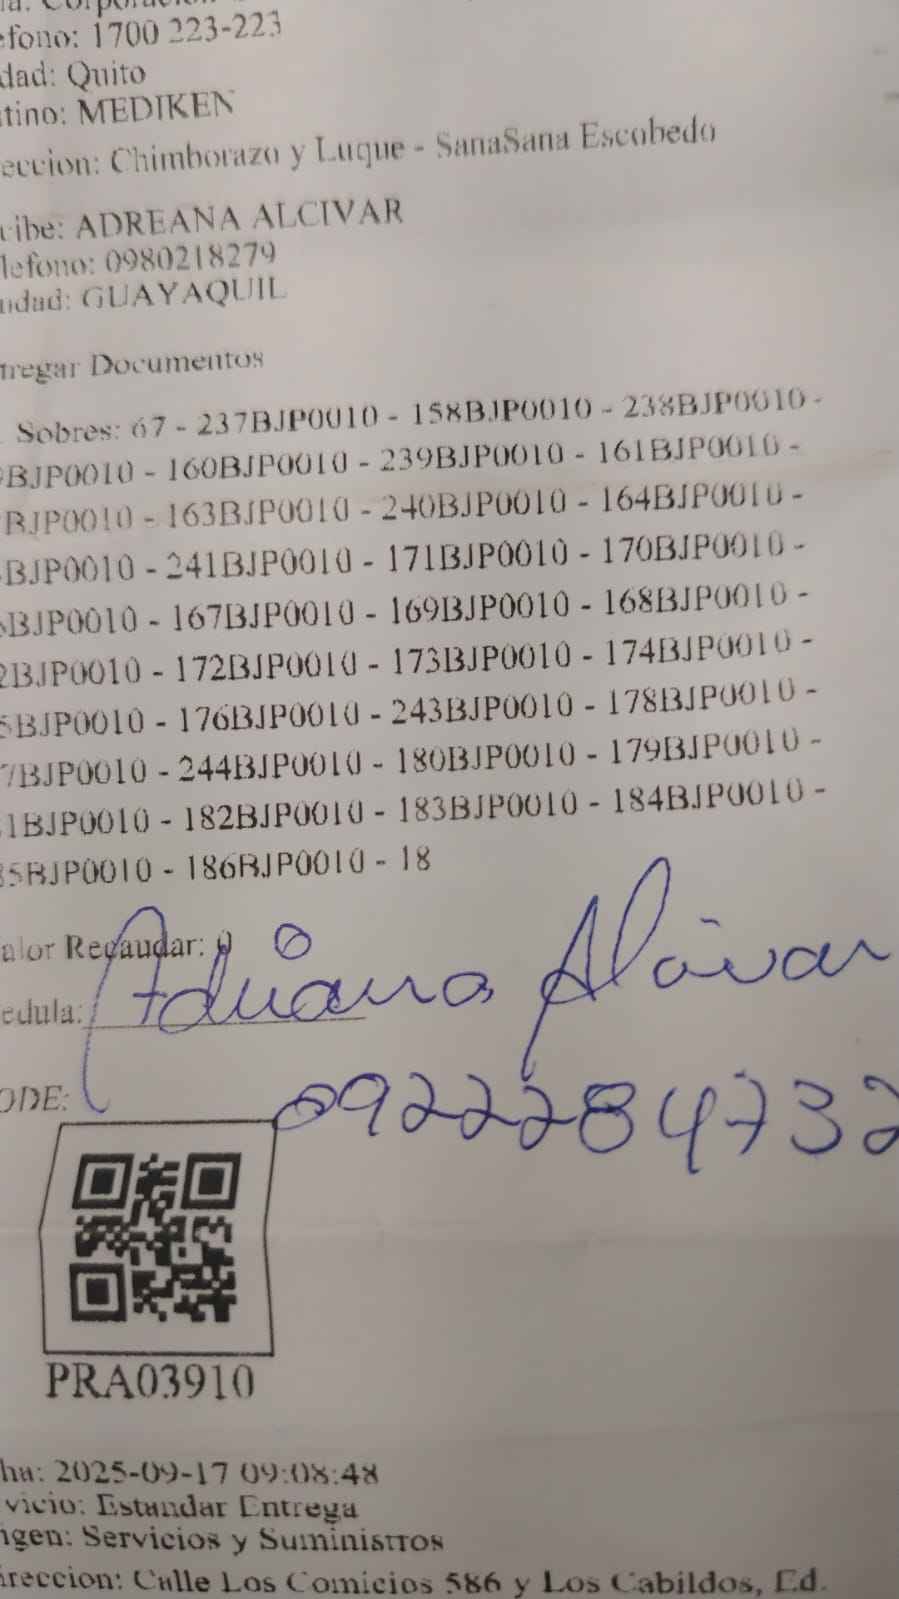 efono: 1700 223-223
dad: Quito
tino: MEDIKEN
eccion: Chimborazo y Luque - SanaSana Escobedo
cibe: ADREANA ALCIVAR
lefono: 0980218279
udad: GUAYAQUIL
tregar Documentos
Sobres: 67 - 237BJP0010 - 158BJP0010 - 238BJP0010 -
BJP0010 - 160BJP0010 - 239BJP0010 - 161BJP0010 -
BJP0010 - 163BJP0010 - 240BJP0010 - 164BJP0010 -
BJP0010 - 241BJP0010 - 171BJP0010 - 170BJP0010 -
BJP0010 - 167BJP0010 - 169BJP0010 - 168BJP0010 -
2BJP0010 - 172BJP0010 - 173BJP0010 - 174BJP0010 -
5BJP0010 - 176BJP0010 - 243BJP0010 - 178BJP0010 -
7BJP0010 - 244BJP0010 - 180BJP0010 - 179BJP0010 -
1BJP0010 - 182BJP0010 - 183BJP0010 - 184BJP0010 -
85BJP0010 - 186BJP0010 - 18
alor Recaudar: 0
edula: Adriana Alcivar
ODE: 0922284732
PRA03910
ha: 2025-09-17 09:08:48
vicio: Estandar Entrega
igen: Servicios y Suministros
ireccion: Calle Los Comicios 586 y Los Cabildos, Ed.